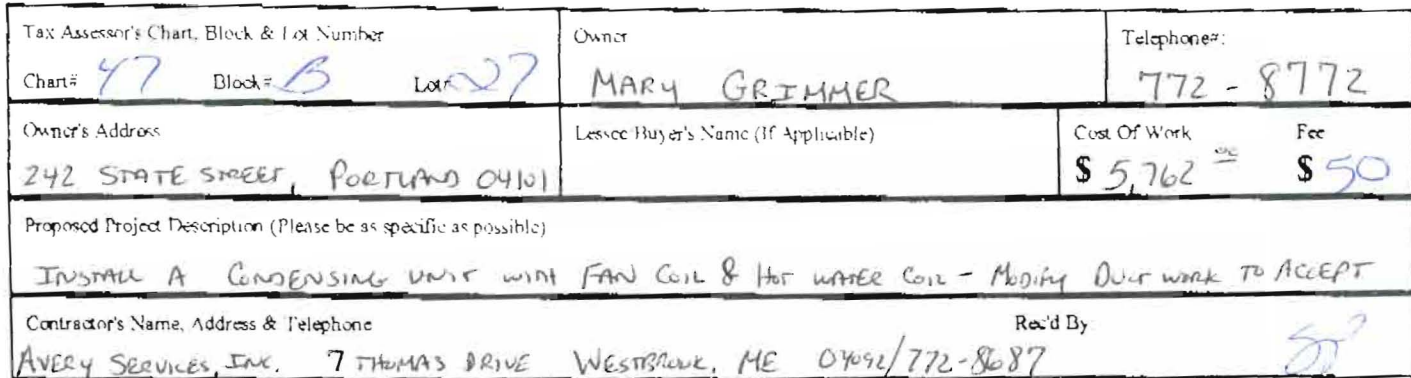 Tax Assessor's Chart, Block & Lot Number
Chart# 47 Block# B Lot# 27
Owner
MARY GRIMMER
Telephone#:
772-8772
Owner's Address
242 STATE STREET, PORTLAND 04101
Lessee/Buyer's Name (If Applicable)
Cost Of Work Fee
$ 5,762 00 $ 50
Proposed Project Description (Please be as specific as possible)
INSTALL A CONDENSING UNIT WITH FAN COIL & HOT WATER COIL - MODIFY DUCT WORK TO ACCEPT
Contractor's Name, Address & Telephone Rec'd By
AVERY SERVICES, INC. 7 THOMAS DRIVE WESTBROOK, ME 04092/772-8687